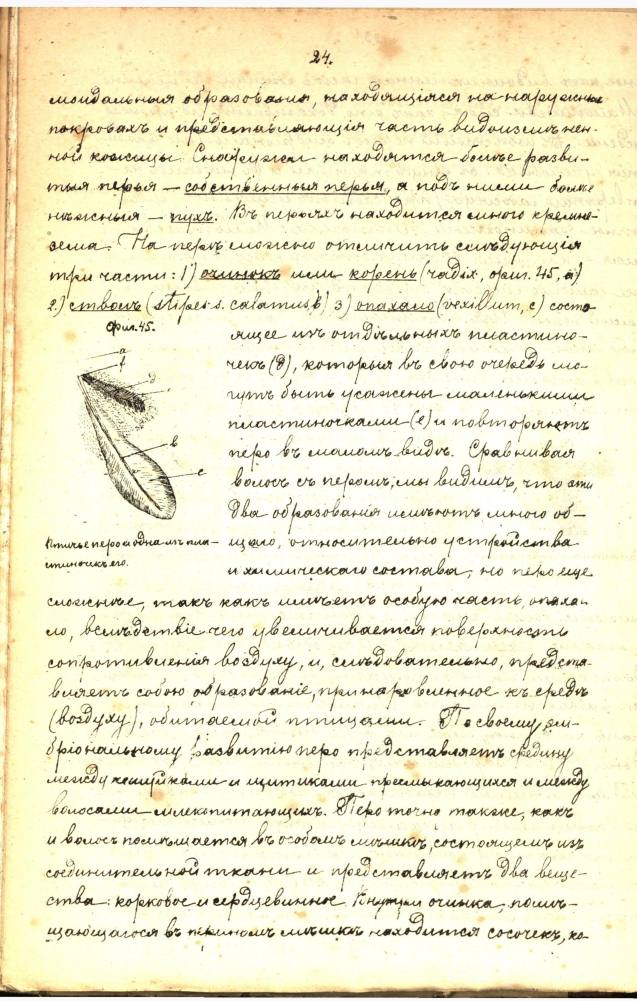 24.
моидальныя образования, находящіяся на наружныхъ
покровахъ и представляющія часть видоизмѣнен-
ной кожицы. Снаружи находятся болѣе разви-
тыя перья — собственныя перья, а подъ ними болѣе
нѣжныя — пухъ. Въ перьяхъ находится много кремне-
зема. На перѣ можно отличить слѣдующія
три части: 1) очинокъ или корень (radix, фиг. 45, a)
2.) стволъ (stipes s. calamus, b) 3) опахало (vexillum, c) состо-
Фиг. 45.
a
f
d
b
c
Птичье перо и одна изъ пла-
стиночекъ его.
ящее изъ отдѣльныхъ пластино-
чекъ (d), которыя въ свою очередь мо-
гутъ быть усажены маленькими
пластиночками (e) и повторяютъ
перо въ маломъ видѣ. Сравнивая
волосъ съ перомъ, мы видимъ, что эти
два образованія имѣютъ много об-
щаго, относительно устройства
и химическаго состава, но перо еще
сложнѣе, такъ какъ имѣетъ особую часть, опаха-
ло, вслѣдствіе чего увеличивается поверхность
сопротивленія воздуху, и, слѣдовательно, предста-
вляетъ собою образованіе, принаровленное къ средѣ
(воздуху), обитаемой птицами. По своему эм-
бріональному развитію перо представляетъ средину
между чешуйками и щитиками пресмыкающихся и между
волосами млекопитающихъ. Перо точно также, какъ
и волосъ помѣщается въ особомъ мѣшкѣ, состоящемъ изъ
соединительной ткани и представляетъ два веще-
ства: корковое и сердцевинное. Внутри очинка, помѣ-
щающагося въ перномъ мѣшкѣ находится сосочекъ, ко-